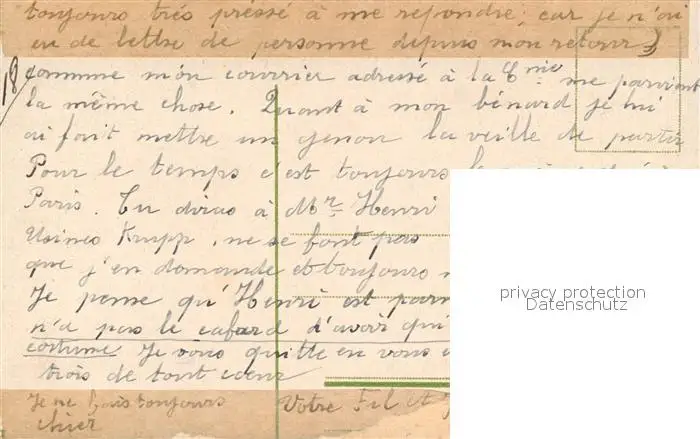 toujours très pressé à me repondre, car je n'ai
eu de lettre de personne depuis mon retour
18
comme mon courrier adressé à la Cnie me parvient
la même chose. Quant à mon bénard je lui
ai fait mettre un genou la veille de partir
Pour le temps c'est toujours
Paris. Tu diras à Mr Henri
Usines Krupp, ne se font pas
que j'en demande et toujours
Je pense qu'Henri est
n'a pas le cafard d'avoir
costume Je vous quitte en vous
trois de tout coeur
Je ne fais toujours
chier
Votre Fils et
privacy protection
Datenschutz